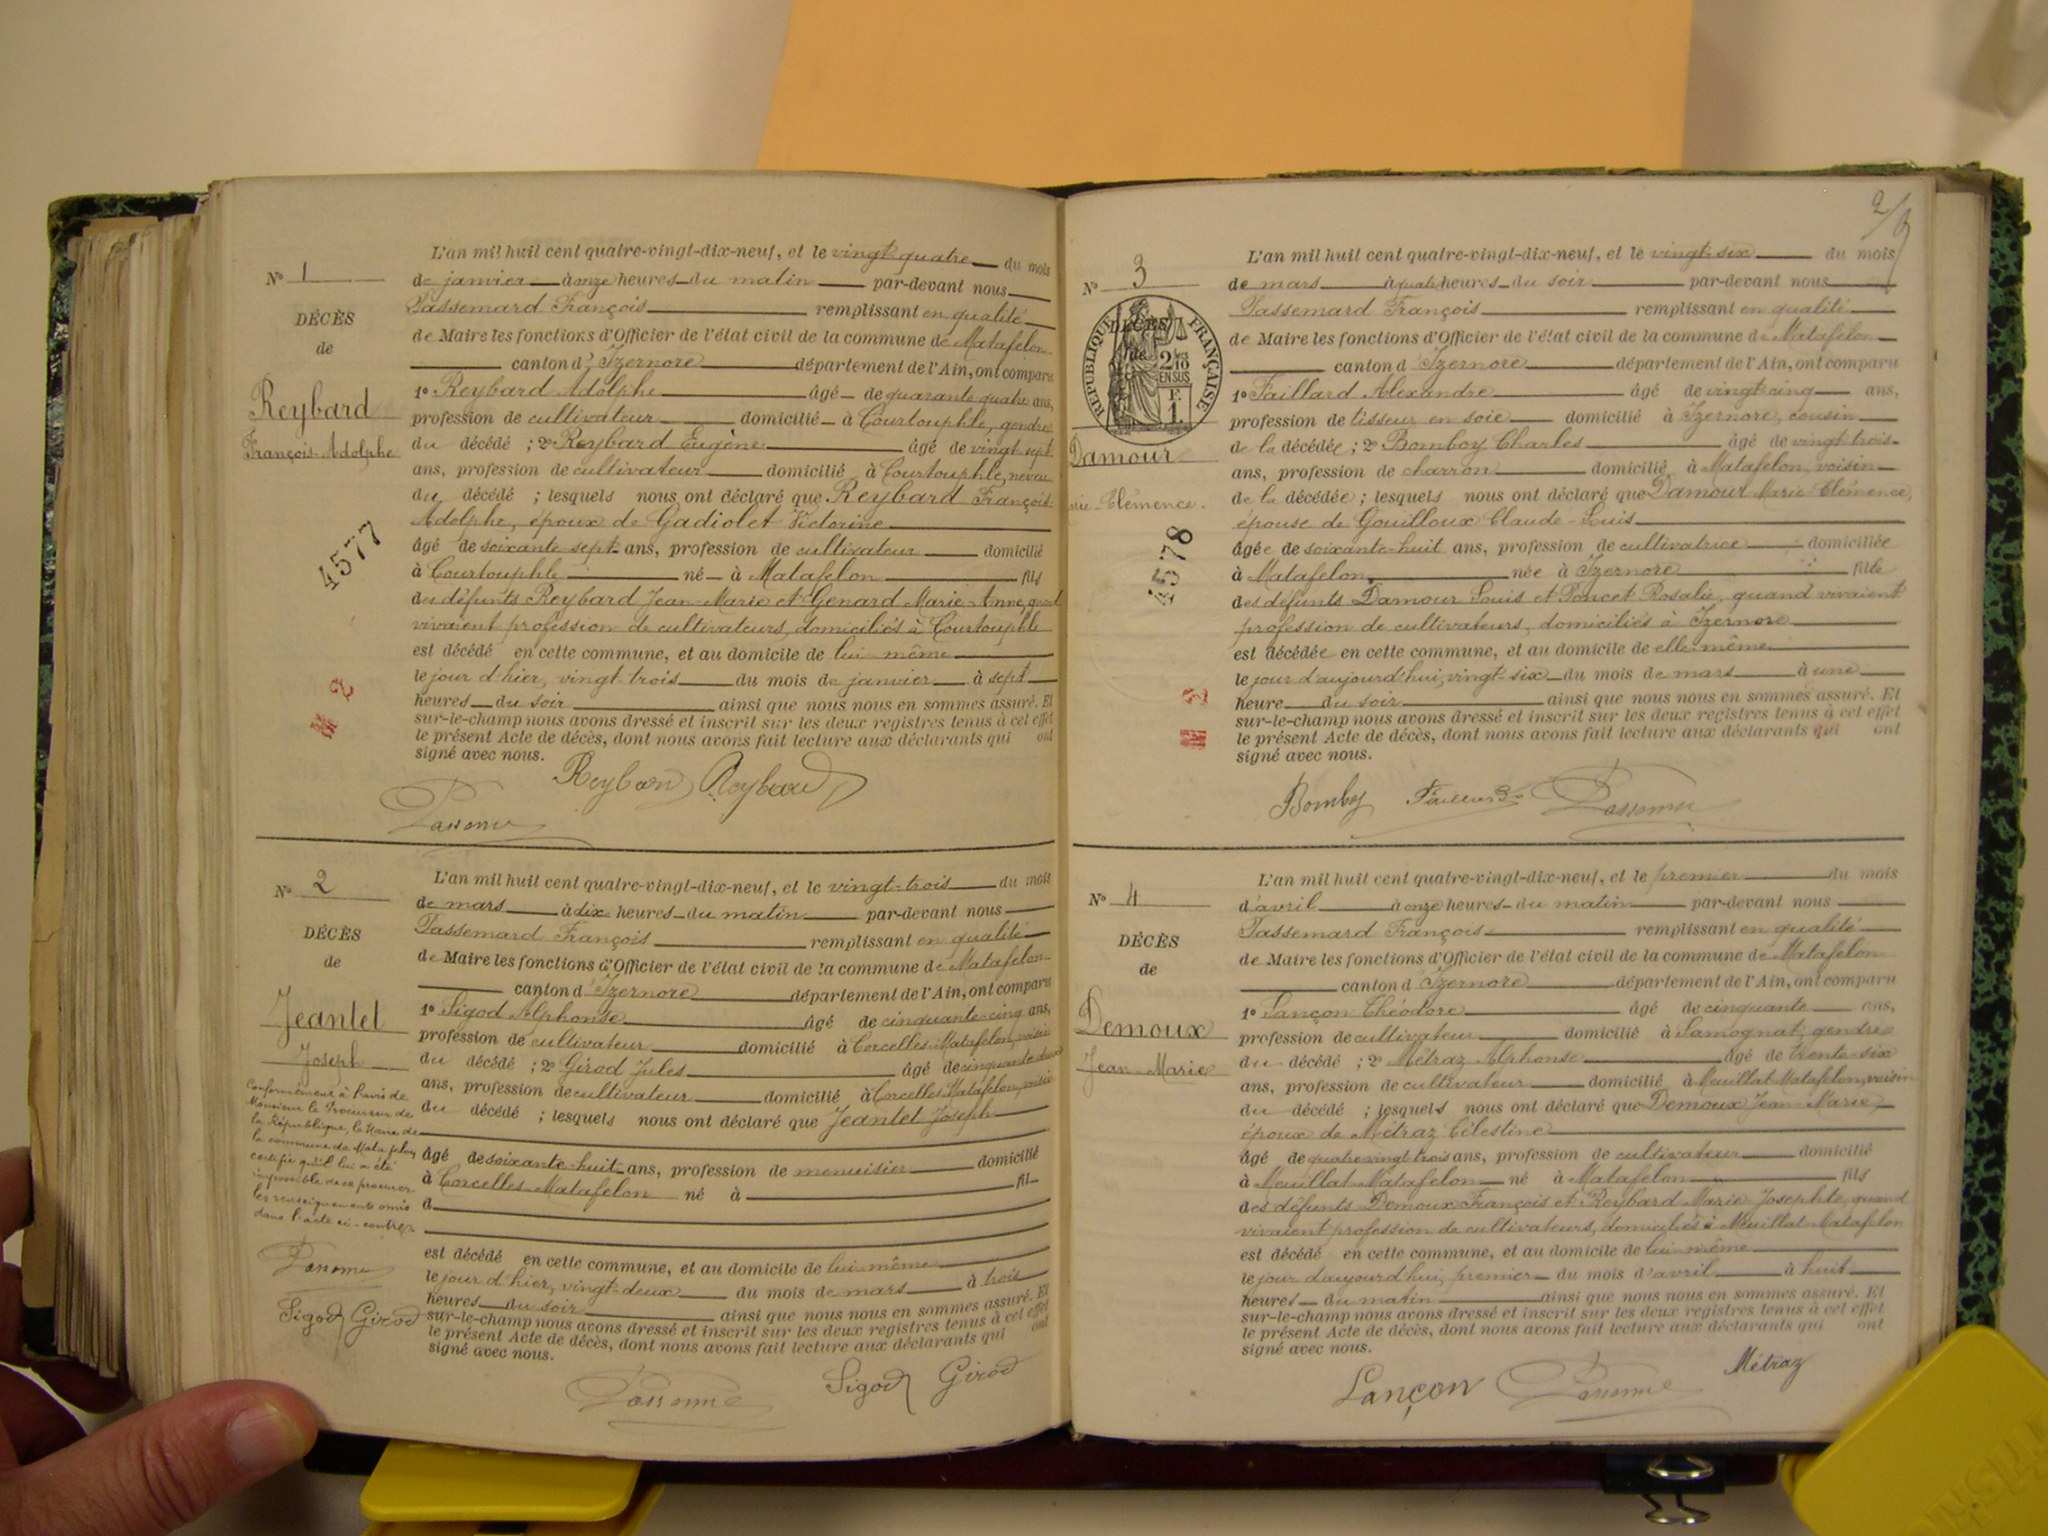 N° 1
DÉCÈS
de
Reybard
François-Adolphe
4577
M 2
L'an mil huit cent quatre-vingt-dix-neuf, et le vingt quatre du mois
de janvier à onze heures du matin par-devant nous
Passemard François remplissant en qualité
de Maire les fonctions d'Officier de l'état civil de la commune de Matafelon
canton d'Izernore département de l'Ain, ont comparu
1° Reybard Adolphe âgé de quarante quatre ans,
profession de cultivateur domicilié à Courtouphle, gendre
du décédé ; 2° Reybard Eugène âgé de vingt sept
ans, profession de cultivateur domicilié à Courtouphle, neveu
du décédé ; lesquels nous ont déclaré que Reybard François-
Adolphe, époux de Gadiolet Victorine
âgé de soixante sept ans, profession de cultivateur domicilié
à Courtouphle né à Matafelon fils
des défunts Reybard Jean-Marie et Genard Marie-Anne, quand
vivaient profession de cultivateurs, domiciliés à Courtouphle
est décédé en cette commune, et au domicile de lui-même
le jour d'hier, vingt trois du mois de janvier à sept
heures du soir ainsi que nous nous en sommes assuré. Et
sur-le-champ nous avons dressé et inscrit sur les deux registres tenus à cet effet
le présent Acte de décès, dont nous avons fait lecture aux déclarants qui ont
signé avec nous.
Reybard Reybard
N° 2
DÉCÈS
de
Jeantet
Joseph
Conformément à l'avis de
Monsieur le Procureur de
la République, le Maire de
la commune de Matafelon
certifie qu'il lui a été
impossible de se procurer
les renseignements omis
dans l'acte ci-contre
Sigod Girod
L'an mil huit cent quatre-vingt-dix-neuf, et le vingt-trois du mois
de mars à dix heures du matin par-devant nous
Passemard François remplissant en qualité
de Maire les fonctions d'Officier de l'état civil de la commune de Matafelon
canton d'Izernore département de l'Ain, ont comparu
1° Sigod Alphonse âgé de cinquante-cinq ans,
profession de cultivateur domicilié à Corcelles-Matafelon, voisin
du décédé ; 2° Girod Jules âgé de cinquante deux
ans, profession de cultivateur domicilié à Corcelles Matafelon, voisin
du décédé ; lesquels nous ont déclaré que Jeantet Joseph
âgé de soixante-huit ans, profession de menuisier domicilié
à Corcelles-Matafelon né à fil
d
est décédé en cette commune, et au domicile de lui-même
le jour d'hier, vingt-deux du mois de mars à trois
heures du soir ainsi que nous nous en sommes assuré. Et
sur-le-champ nous avons dressé et inscrit sur les deux registres tenus à cet effet
le présent Acte de décès, dont nous avons fait lecture aux déclarants qui ont
signé avec nous.
Sigod Girod
2
N° 3
RÉPUBLIQUE FRANÇAISE
DÉCÈS
de
2/10
EN SUS
F.
1
Damour
Clémence.
4578
M 2
L'an mil huit cent quatre-vingt-dix-neuf, et le vingt-six du mois
de mars à quatre heures du soir par-devant nous
Passemard François remplissant en qualité
de Maire les fonctions d'Officier de l'état civil de la commune de Matafelon
canton d'Izernore département de l'Ain, ont comparu
1° Faillard Alexandre âgé de vingt-cinq ans,
profession de tisseur en soie domicilié à Izernore, cousin
de la décédée ; 2° Bomboy Charles âgé de vingt-trois
ans, profession de charron domicilié à Matafelon, voisin
de la décédée ; lesquels nous ont déclaré que Damour Marie Clémence,
épouse de Gouilloux Claude-Louis
âgée de soixante-huit ans, profession de cultivatrice domiciliée
à Matafelon, née à Izernore fille
des défunts Damour Louis et Poncet Rosalie, quand vivaient
profession de cultivateurs, domiciliés à Izernore
est décédée en cette commune, et au domicile de elle-même
le jour d'aujourd'hui, vingt-six du mois de mars à une
heure du soir ainsi que nous nous en sommes assuré. Et
sur-le-champ nous avons dressé et inscrit sur les deux registres tenus à cet effet
le présent Acte de décès, dont nous avons fait lecture aux déclarants qui ont
signé avec nous.
Bomboy Faillard
N° 4
DÉCÈS
de
Demoux
Jean-Marie
L'an mil huit cent quatre-vingt-dix-neuf, et le premier du mois
d'avril à onze heures du matin par-devant nous
Passemard François remplissant en qualité
de Maire les fonctions d'Officier de l'état civil de la commune de Matafelon
canton d'Izernore département de l'Ain, ont comparu
1° Lançon Théodore âgé de cinquante ans,
profession de cultivateur domicilié à Samognat, gendre
du décédé ; 2° Métraz Alphonse âgé de trente-six
ans, profession de cultivateur domicilié à Meuillat-Matafelon, voisin
du décédé ; lesquels nous ont déclaré que Demoux Jean-Marie,
époux de Métraz Célestine
âgé de quatre vingt trois ans, profession de cultivateur domicilié
à Meuillat Matafelon né à Matafelon fils
des défunts Demoux François et Reybard Marie Josephte, quand
vivaient profession de cultivateurs, domiciliés à Meuillat-Matafelon
est décédé en cette commune, et au domicile de lui-même
le jour d'aujourd'hui, premier du mois d'avril à huit
heures du matin ainsi que nous nous en sommes assuré. Et
sur-le-champ nous avons dressé et inscrit sur les deux registres tenus à cet effet
le présent Acte de décès, dont nous avons fait lecture aux déclarants qui ont
signé avec nous.
Lançon Métraz